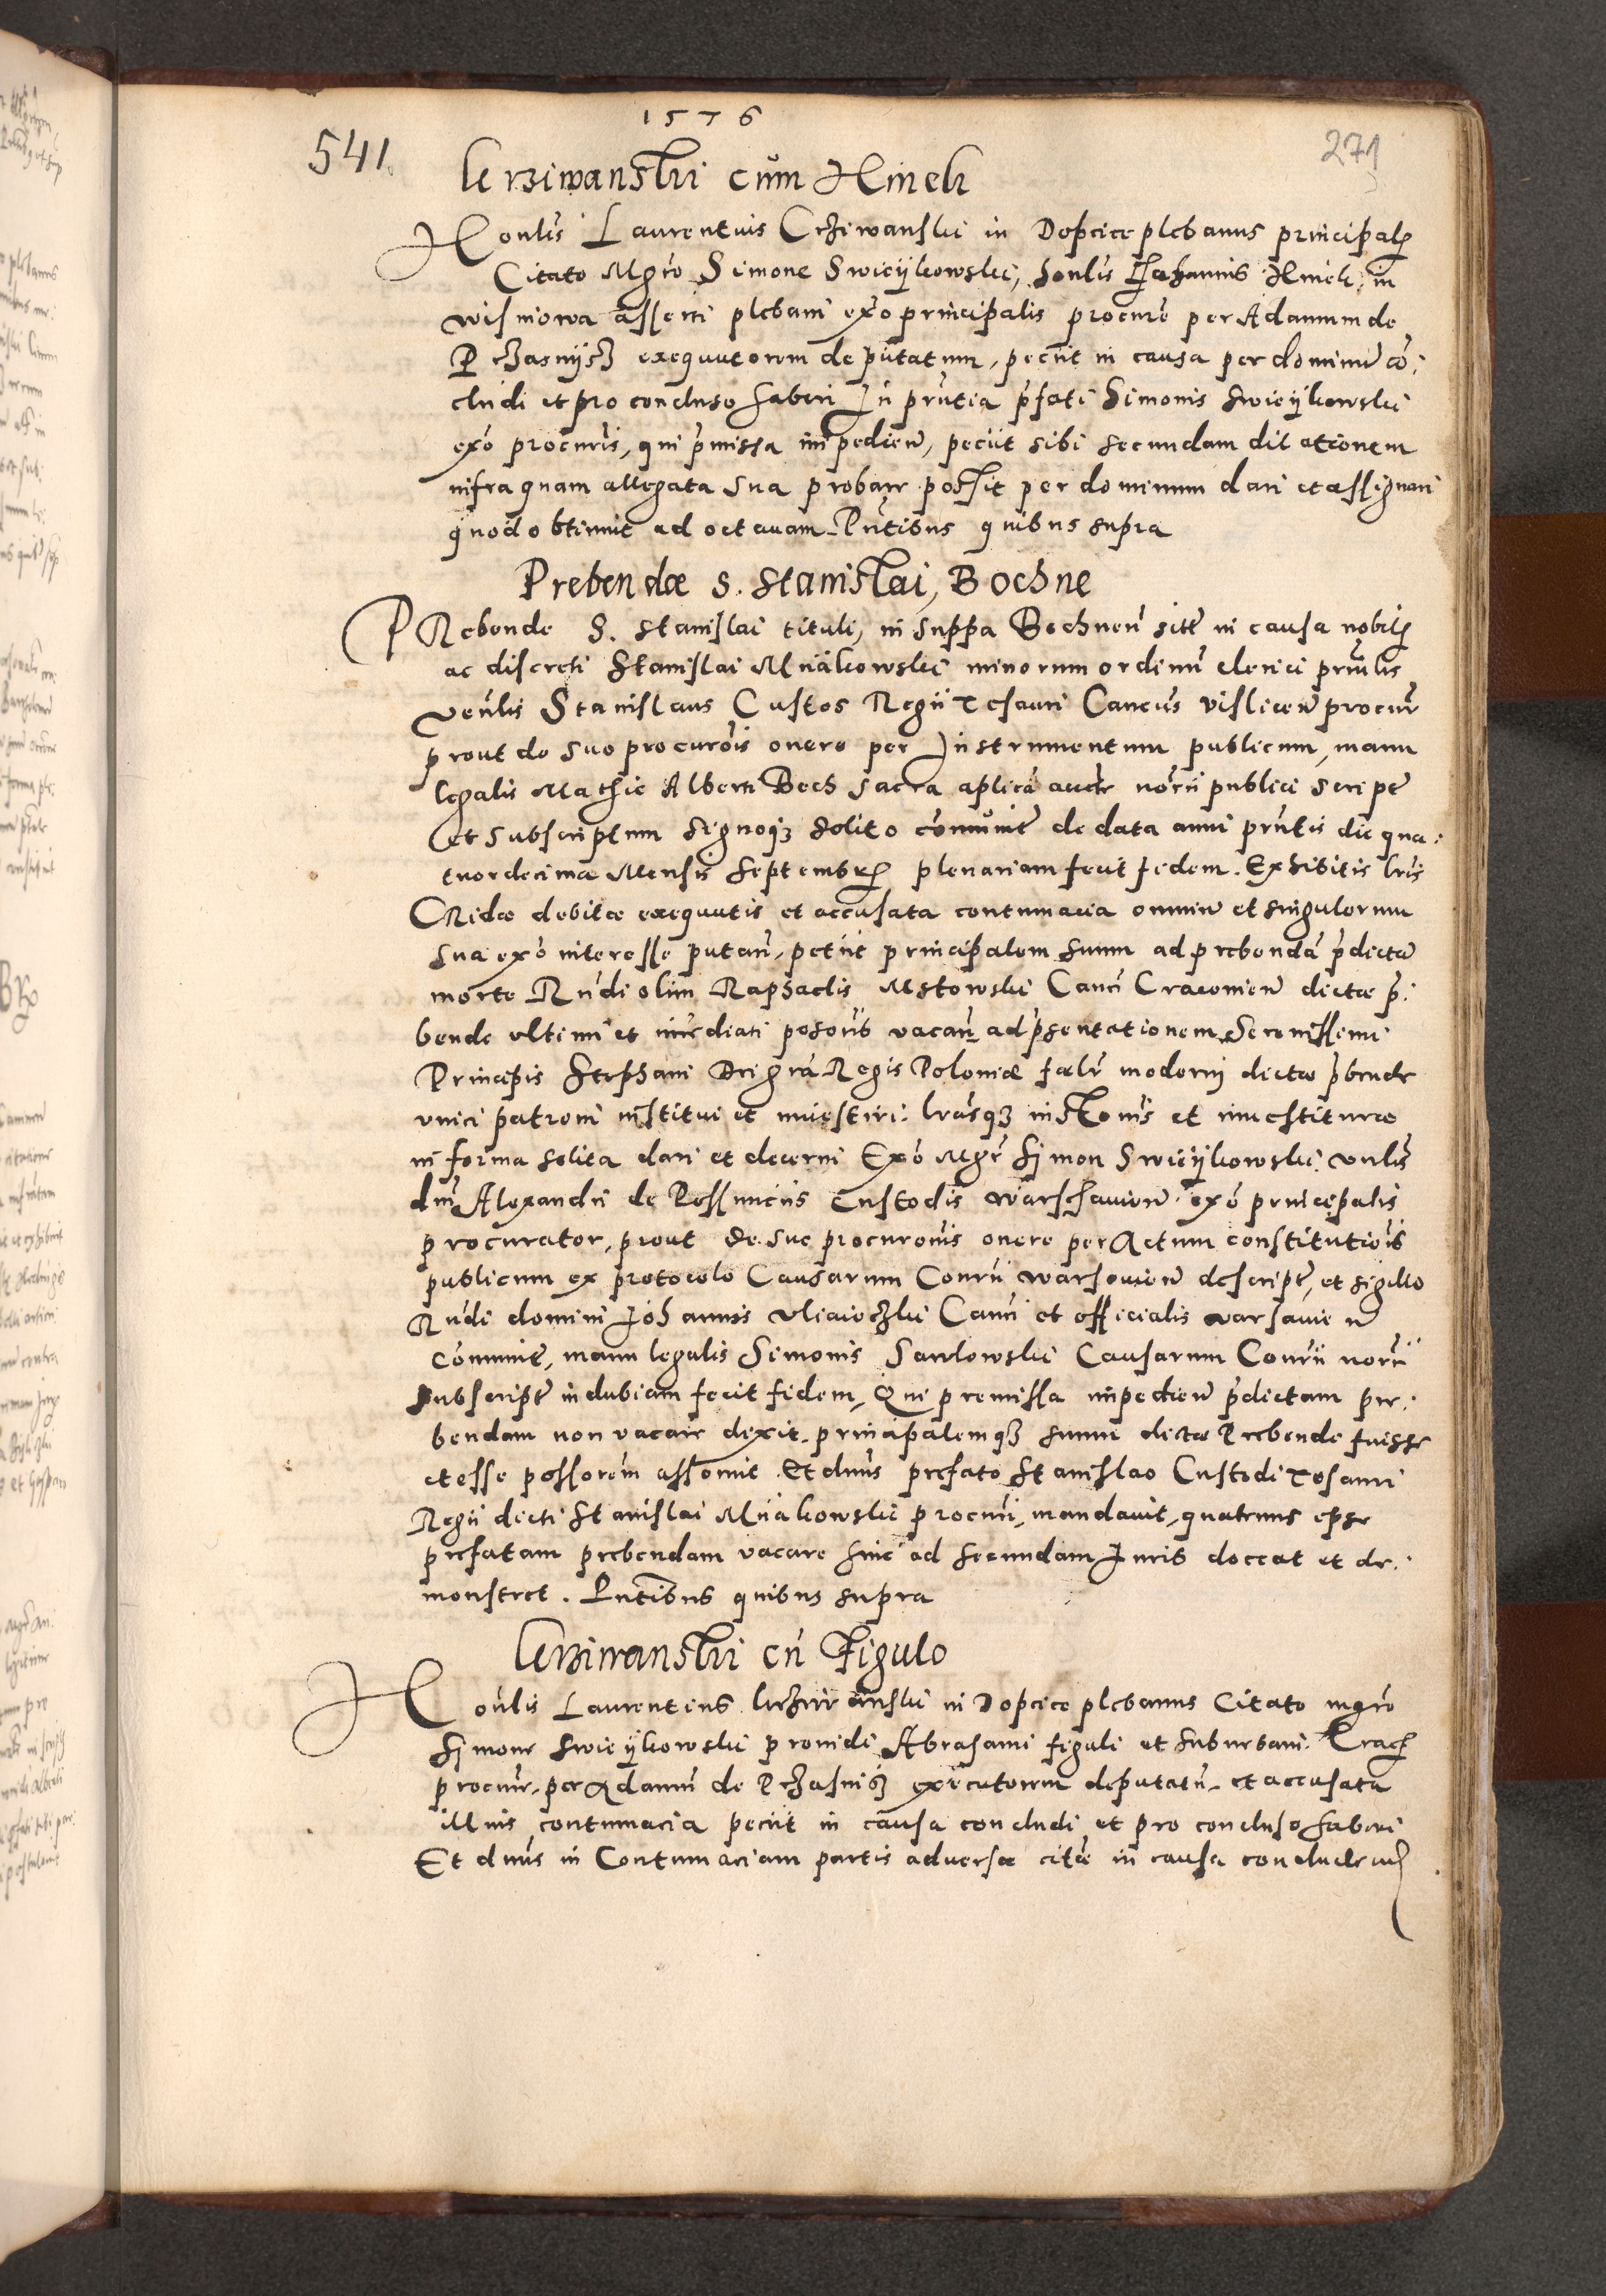 1576
541.
271
Crziwanskii cum Hinek
Honlis Laurentius Crziwanskii in Dopcice plebanus principalis
Citato Mgro Simone Swieykowskii, honlis Johannis Hinek, in
wisniowa asserti plebani exo principalis procure per Adamum de
Przasnysz exequutorem deputatum, petiit in causa per dominum co:
cludi et pro concluso haberi In prntia prfati Simonis Swieykowskii
exo procuris, qui prmissa impedien, petiit sibi secundam dilationem
infra quam allegata sua probare possit per dominum dari et assignari
quod obtinuit ad octavam. Prntibus quibus supra
Prebendæ S. Stanislai, Bochne
PRebende S. Stanislai tituli, in suppa Bochnen site in causa nobilis
ac discreti Stanislai Mniakowskii minorum ordinum clerici prinlis
venlis Stanislaus Custos Regii Tesauri Cancus vislicen procur
prout de suo procurois onere per Instrumentum publicum, manu
legalis Mathie Alberti Boch sacra aplica auctte norii publici script
et subscriptum signoq3 solito comunit de data anni prntis die qua:
tuordecima Mensis Septembris plenariam fecit fidem. Exhibitis lris
CRidæ debitæ exequutis et accusata contumacia omnium et singulorum
sua exo interesse putan, petiit principalem suum ad prebenda prdictam
morte Rndi olim Raphaelis Mstowskii Canci Cracovien dictæ pre:
bende ultimi et immediati posoris vacan ad prsentationem Serenissimi
Principis Stephani Dei gra Regis Poloniæ foelr moderni dictæ prbende
unici patroni institui et investiri. lrasq3 institonis et investituræ
in forma solita dari et decerni Exo Mgr Simon Swieykowskii vnlis
dni Alexandri de Possnnciis Custodis warschavien. exo principalis
procurator, prout de suo procuronis onere per Actum constitutiois
publicum ex protocolo Causarum Conrii warsovien descript, et sigillo
Rndi domini Johannis Canci et officialis varsavien
comunit, manu legalis Simonis Sawlowskii Causarum Conrii norii
subscript indubiam fecit fidem, Qui premissa impedien prdictam pre:
bendam non vacare dixit. principalemq3 suum dictæ Prebende fuisse
et esse possorem asseruit. Et dnus prefato Stanislao Custodi Tesauri
Regii dicti Stanislai Mniakowskii procuri, mandavit, quatenus ipse
prefatam prebendam vacare hinc ad secundam Juris doceat et de:
monstret. Prntibus quibus supra
Crziwanskii cu Figulo
Honlis Laurentius Crziwanskii in Dopcice plebanus Citato mgro
Simone Swieykowskii providi Abrahami figuli et suburbani Crac
procure, per Adamum de Przasnisz executorem deputatum, et accusata
illius contumacia petiit in causa concludi et pro concluso haberi
Et dnus in Contumaciam partis adversæ citæ in causa